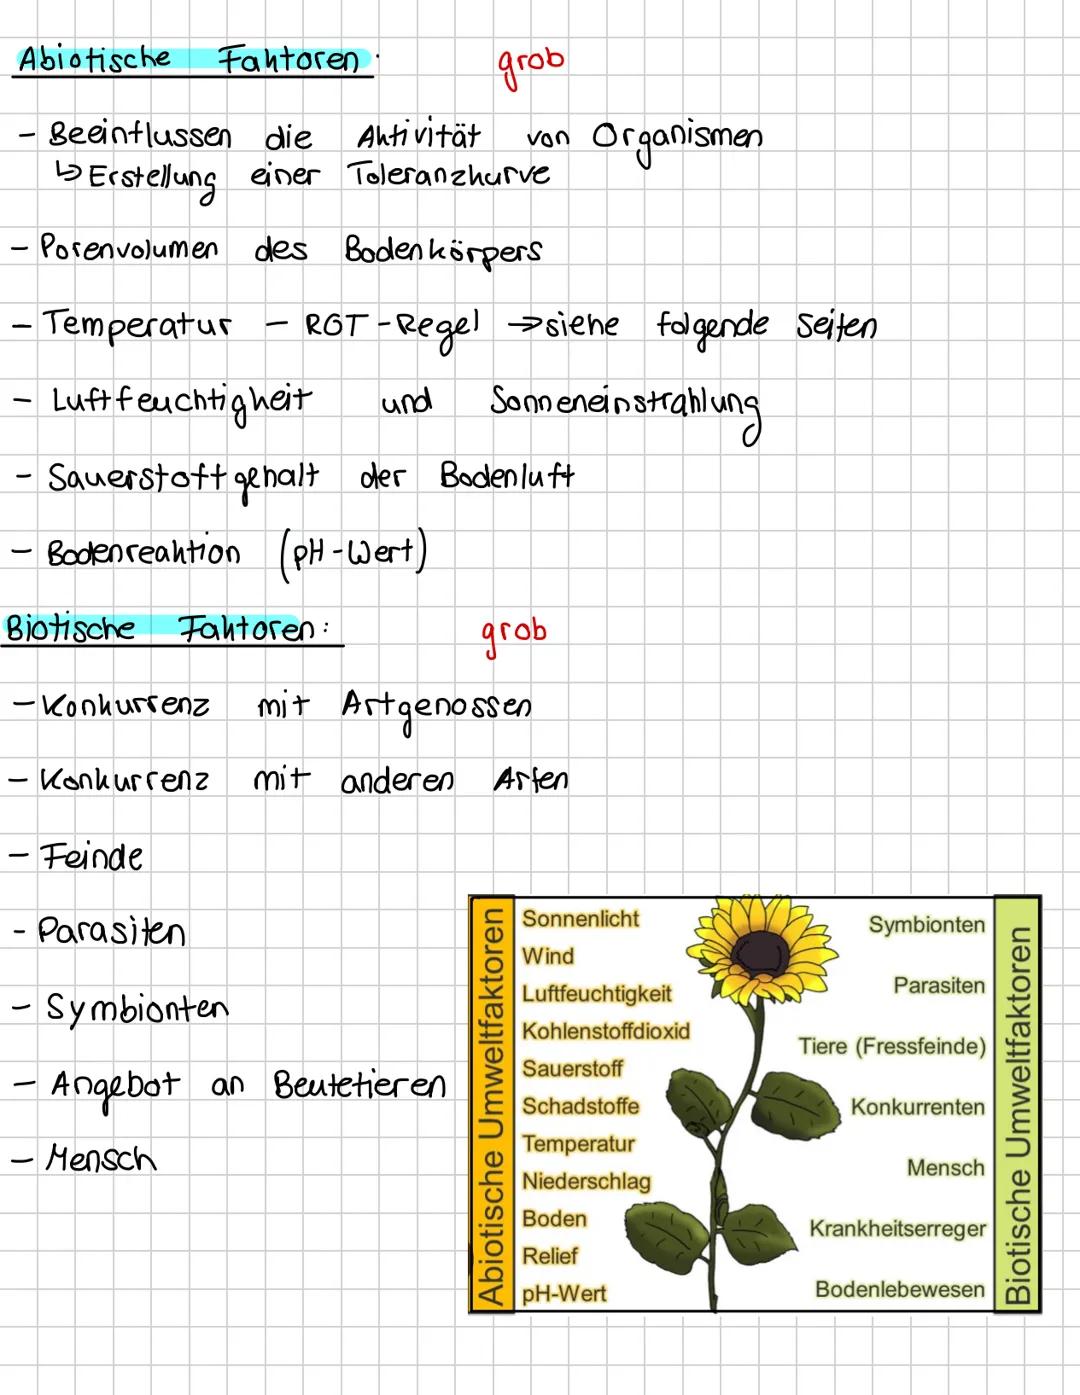 Abiotische Faktoren: grob
- Beeinflussen die Aktivität von Organismen
↳ Erstellung einer Toleranzkurve
- Porenvolumen des Bodenkörpers
- Temperatur - RGT-Regel → siehe folgende Seiten
- Luftfeuchtigkeit und Sonneneinstrahlung
- Sauerstoffgehalt der Bodenluft
- Bodenreaktion (pH-Wert)
Biotische Faktoren: grob
- Konkurrenz mit Artgenossen
- Konkurrenz mit anderen Arten
- Feinde
- Parasiten
- Symbionten
- Angebot an Beutetieren
- Mensch
Abiotische Umweltfaktoren
Sonnenlicht
Wind
Luftfeuchtigkeit
Kohlenstoffdioxid
Sauerstoff
Schadstoffe
Temperatur
Niederschlag
Boden
Relief
pH-Wert
Symbionten
Parasiten
Tiere (Fressfeinde)
Konkurrenten
Mensch
Krankheitserreger
Bodenlebewesen
Biotische Umweltfaktoren